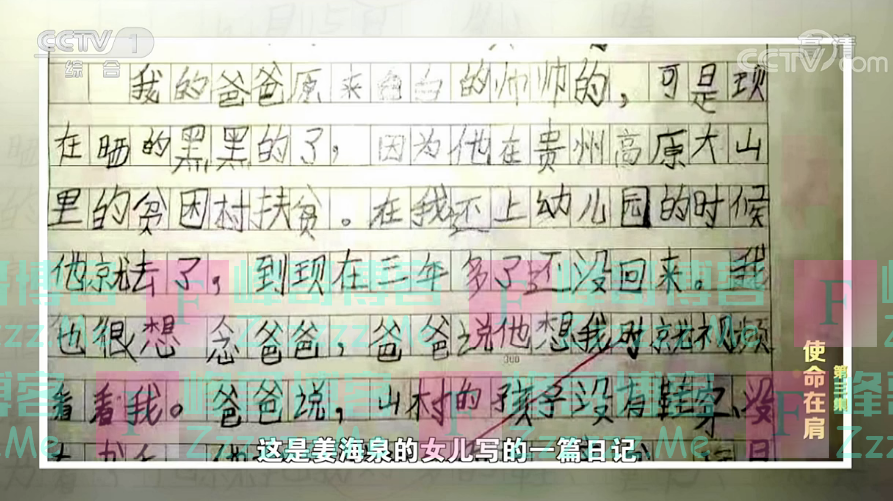 CCTV 1
综合
高清
CCTV.com
我的爸爸原来白白的帅帅的，可是现
在晒的黑黑的了，因为他在贵州高原大山
里的贫困村扶贫。在我还上幼儿园的时候
他就去了，到现在三年多了还没回来。我
也很想念爸爸，爸爸说他想我时就视频
看看我。爸爸说，山村的孩子没有鞋穿、没
300
这是姜海泉的女儿写的一篇日记
使命在肩
第三集
峰哥博客
ZzzzMe